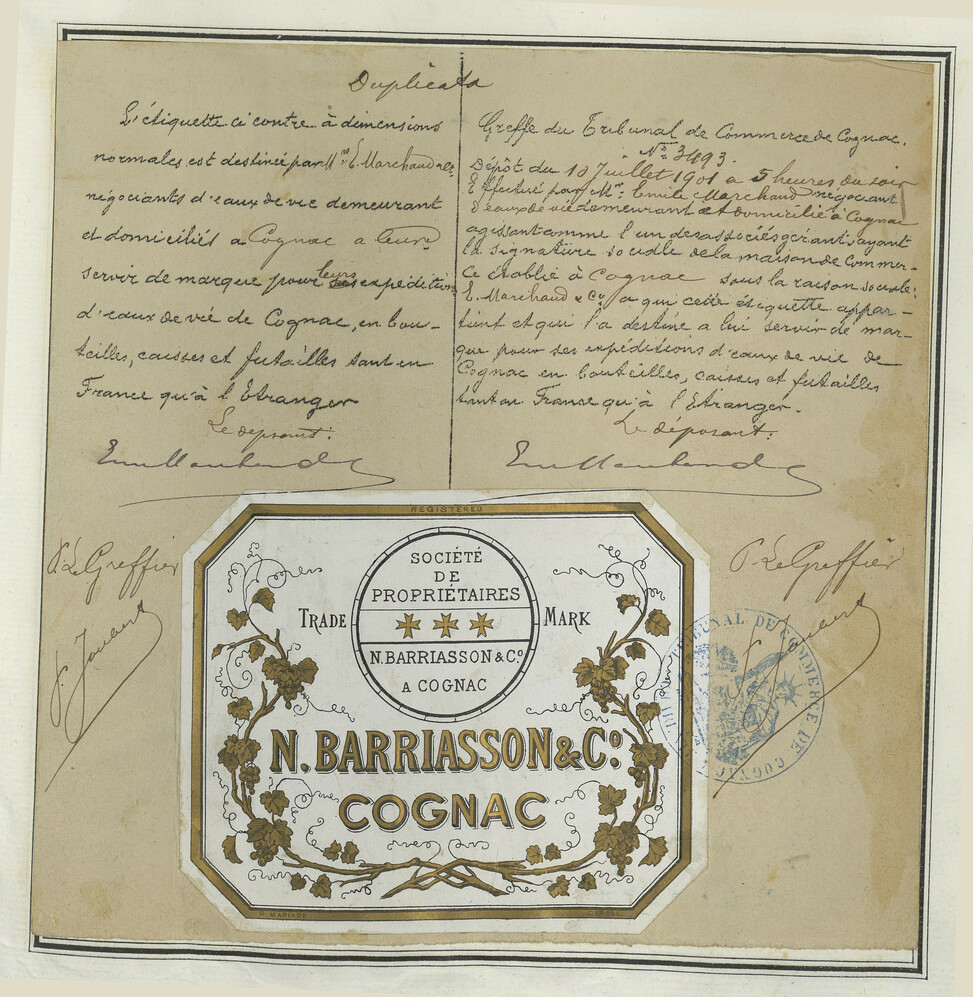 Duplicata
L'étiquette ci contre à dimensions
normales est destinée par Mrs E. Marchand & Co
négociants d'eaux de vie demeurant
et domiciliés a Cognac a leur
servir de marque pour leurs expéditions
d'eaux de vie de Cognac, en bou-
teilles, caisses et futailles tant en
France qu'à l'Etranger
Le déposant:
P. Le Greffier
Greffe du Tribunal de Commerce de Cognac.
No 3493.
Dépôt du 10 Juillet 1901 a 5 heures du soir
Effectué par Mr. Emile Marchand négociant
d'eaux de vie demeurant et domicilié à Cognac
agissant comme l'un des associés gérants, ayant
la signature sociale de la maison de commer-
ce établie à Cognac sous la raison sociale:
E. Marchand & Co a qui cette étiquette appar-
tient et qui l'a destine a lui servir de mar-
que pour ses expéditions d'eaux de vie de
Cognac en bouteilles, caisses et futailles
tant en France qu'à l'Etranger.
Le déposant:
P. Le Greffier
REGISTERED
SOCIÉTÉ
DE
PROPRIÉTAIRES
TRADE MARK
N. BARRIASSON & Co
A COGNAC
N. BARRIASSON & Co.
COGNAC
P. MARIAGE
DÉPOSÉ
TRIBUNAL DE COMMERCE DE COGNAC